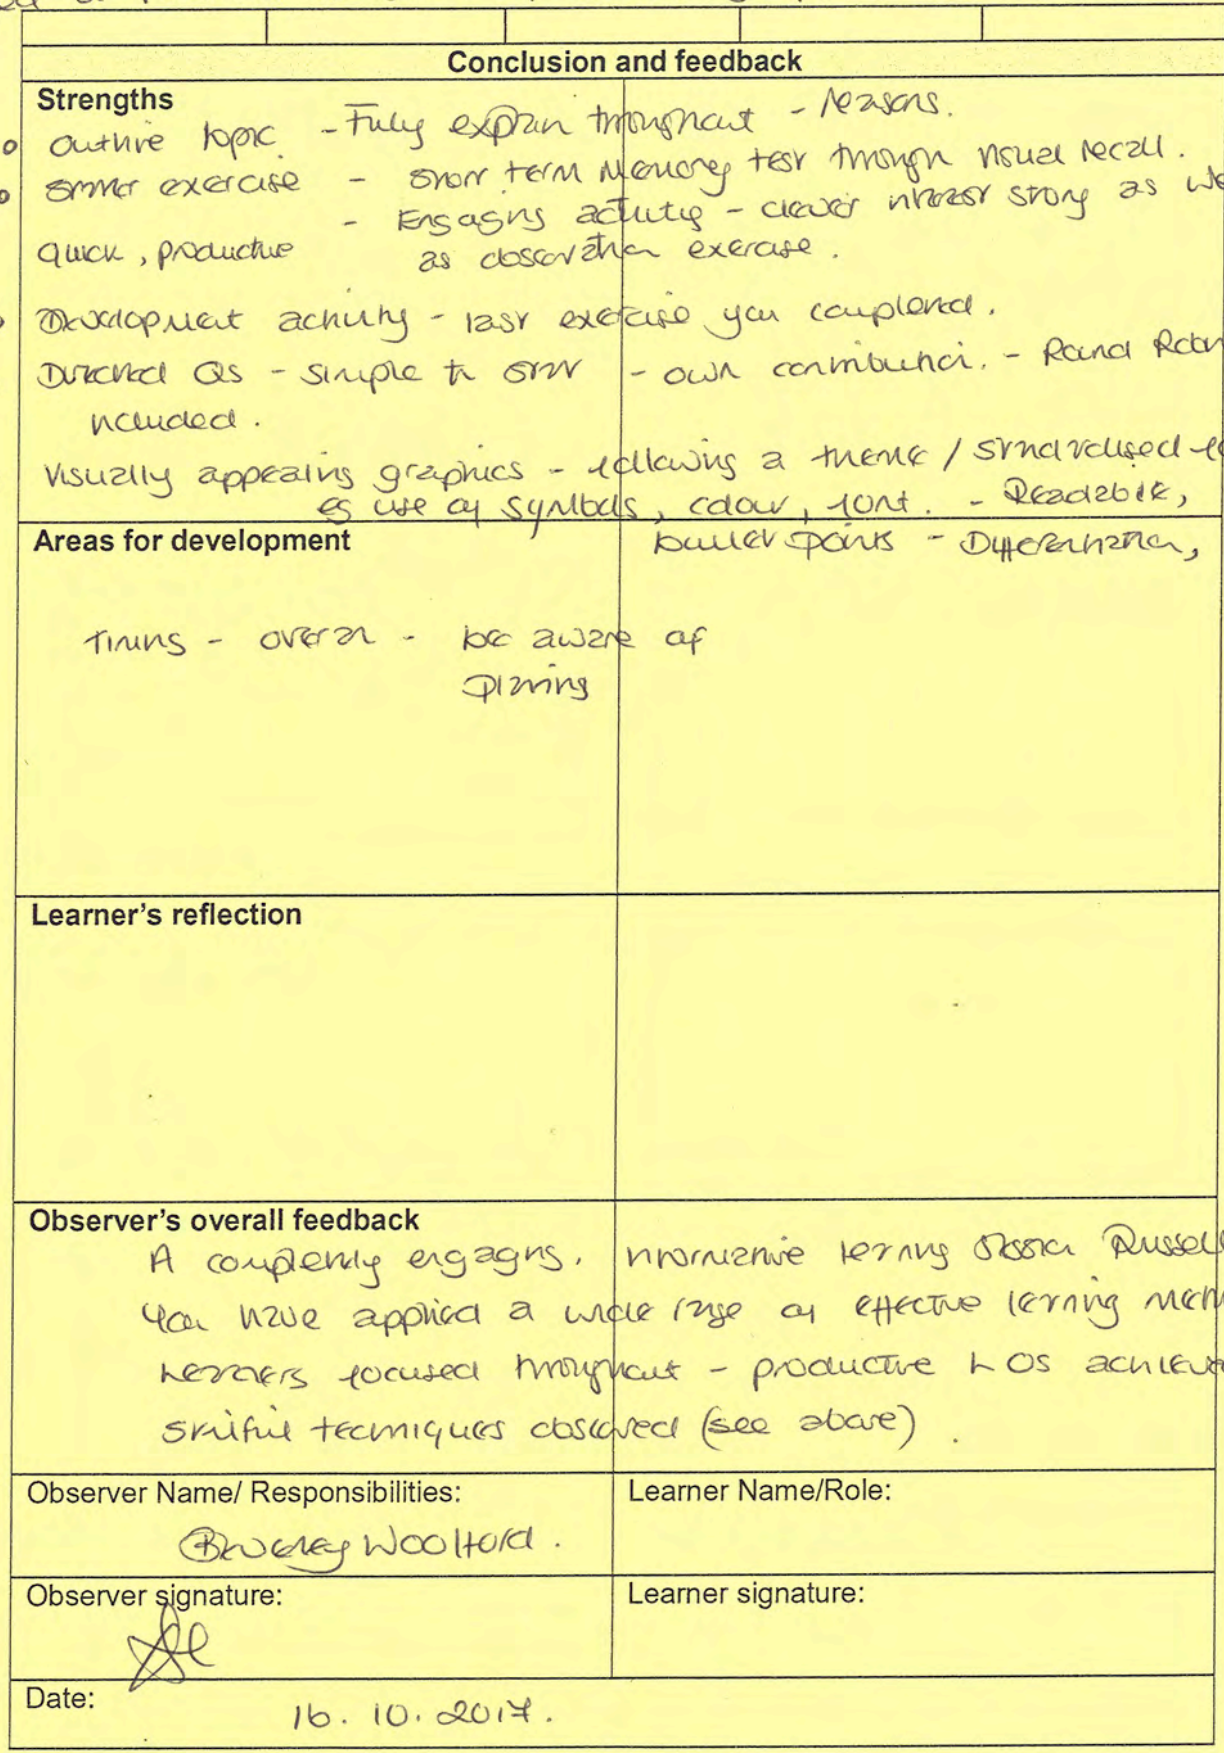 Conclusion and feedback
Strengths
Outline topic - Fully explain throughout - reasons.
starter exercise - short term memory test through visual recall.
- Engaging activity - clever interest story as
quick, productive as observation exercise.
Development activity - last exercise you completed.
Directed Qs - simple to start - own contribution. - Round Robin
included.
Visually appealing graphics - following a theme / standardised
eg use of symbols, colour, font. - Readable,
Areas for development bullet points - Differentiation,
Timing - overran - be aware of
planning
Learner's reflection
Observer's overall feedback
A completely engaging, informative learning session Russell
You have applied a wide range of effective learning
Learners focused throughout - productive LOs
Skilful techniques observed (see above).
Observer Name/ Responsibilities: Learner Name/Role:
Beverley Woolford.
Observer signature: Learner signature:
Date: 16.10.2017.